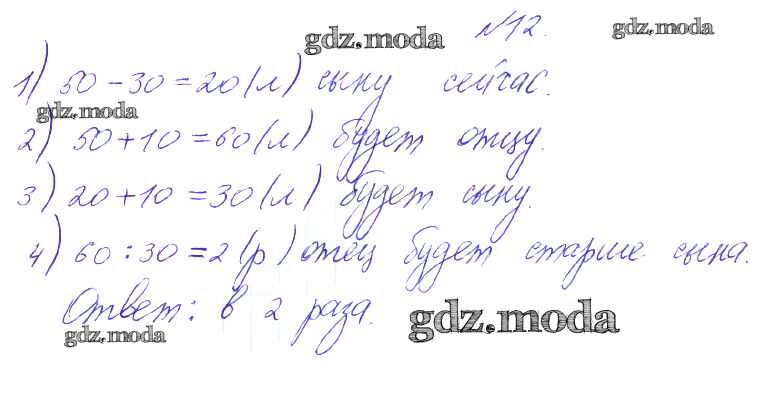 gdz.moda №12. gdz.moda
1) 50-30=20(л) сыну сейчас.
gdz.moda
2) 50+10=60(л) будет отцу.
3) 20+10=30(л) будет сыну.
4) 60:30=2(р) отец будет старше сына.
Ответ: в 2 раза. gdz.moda
gdz.moda